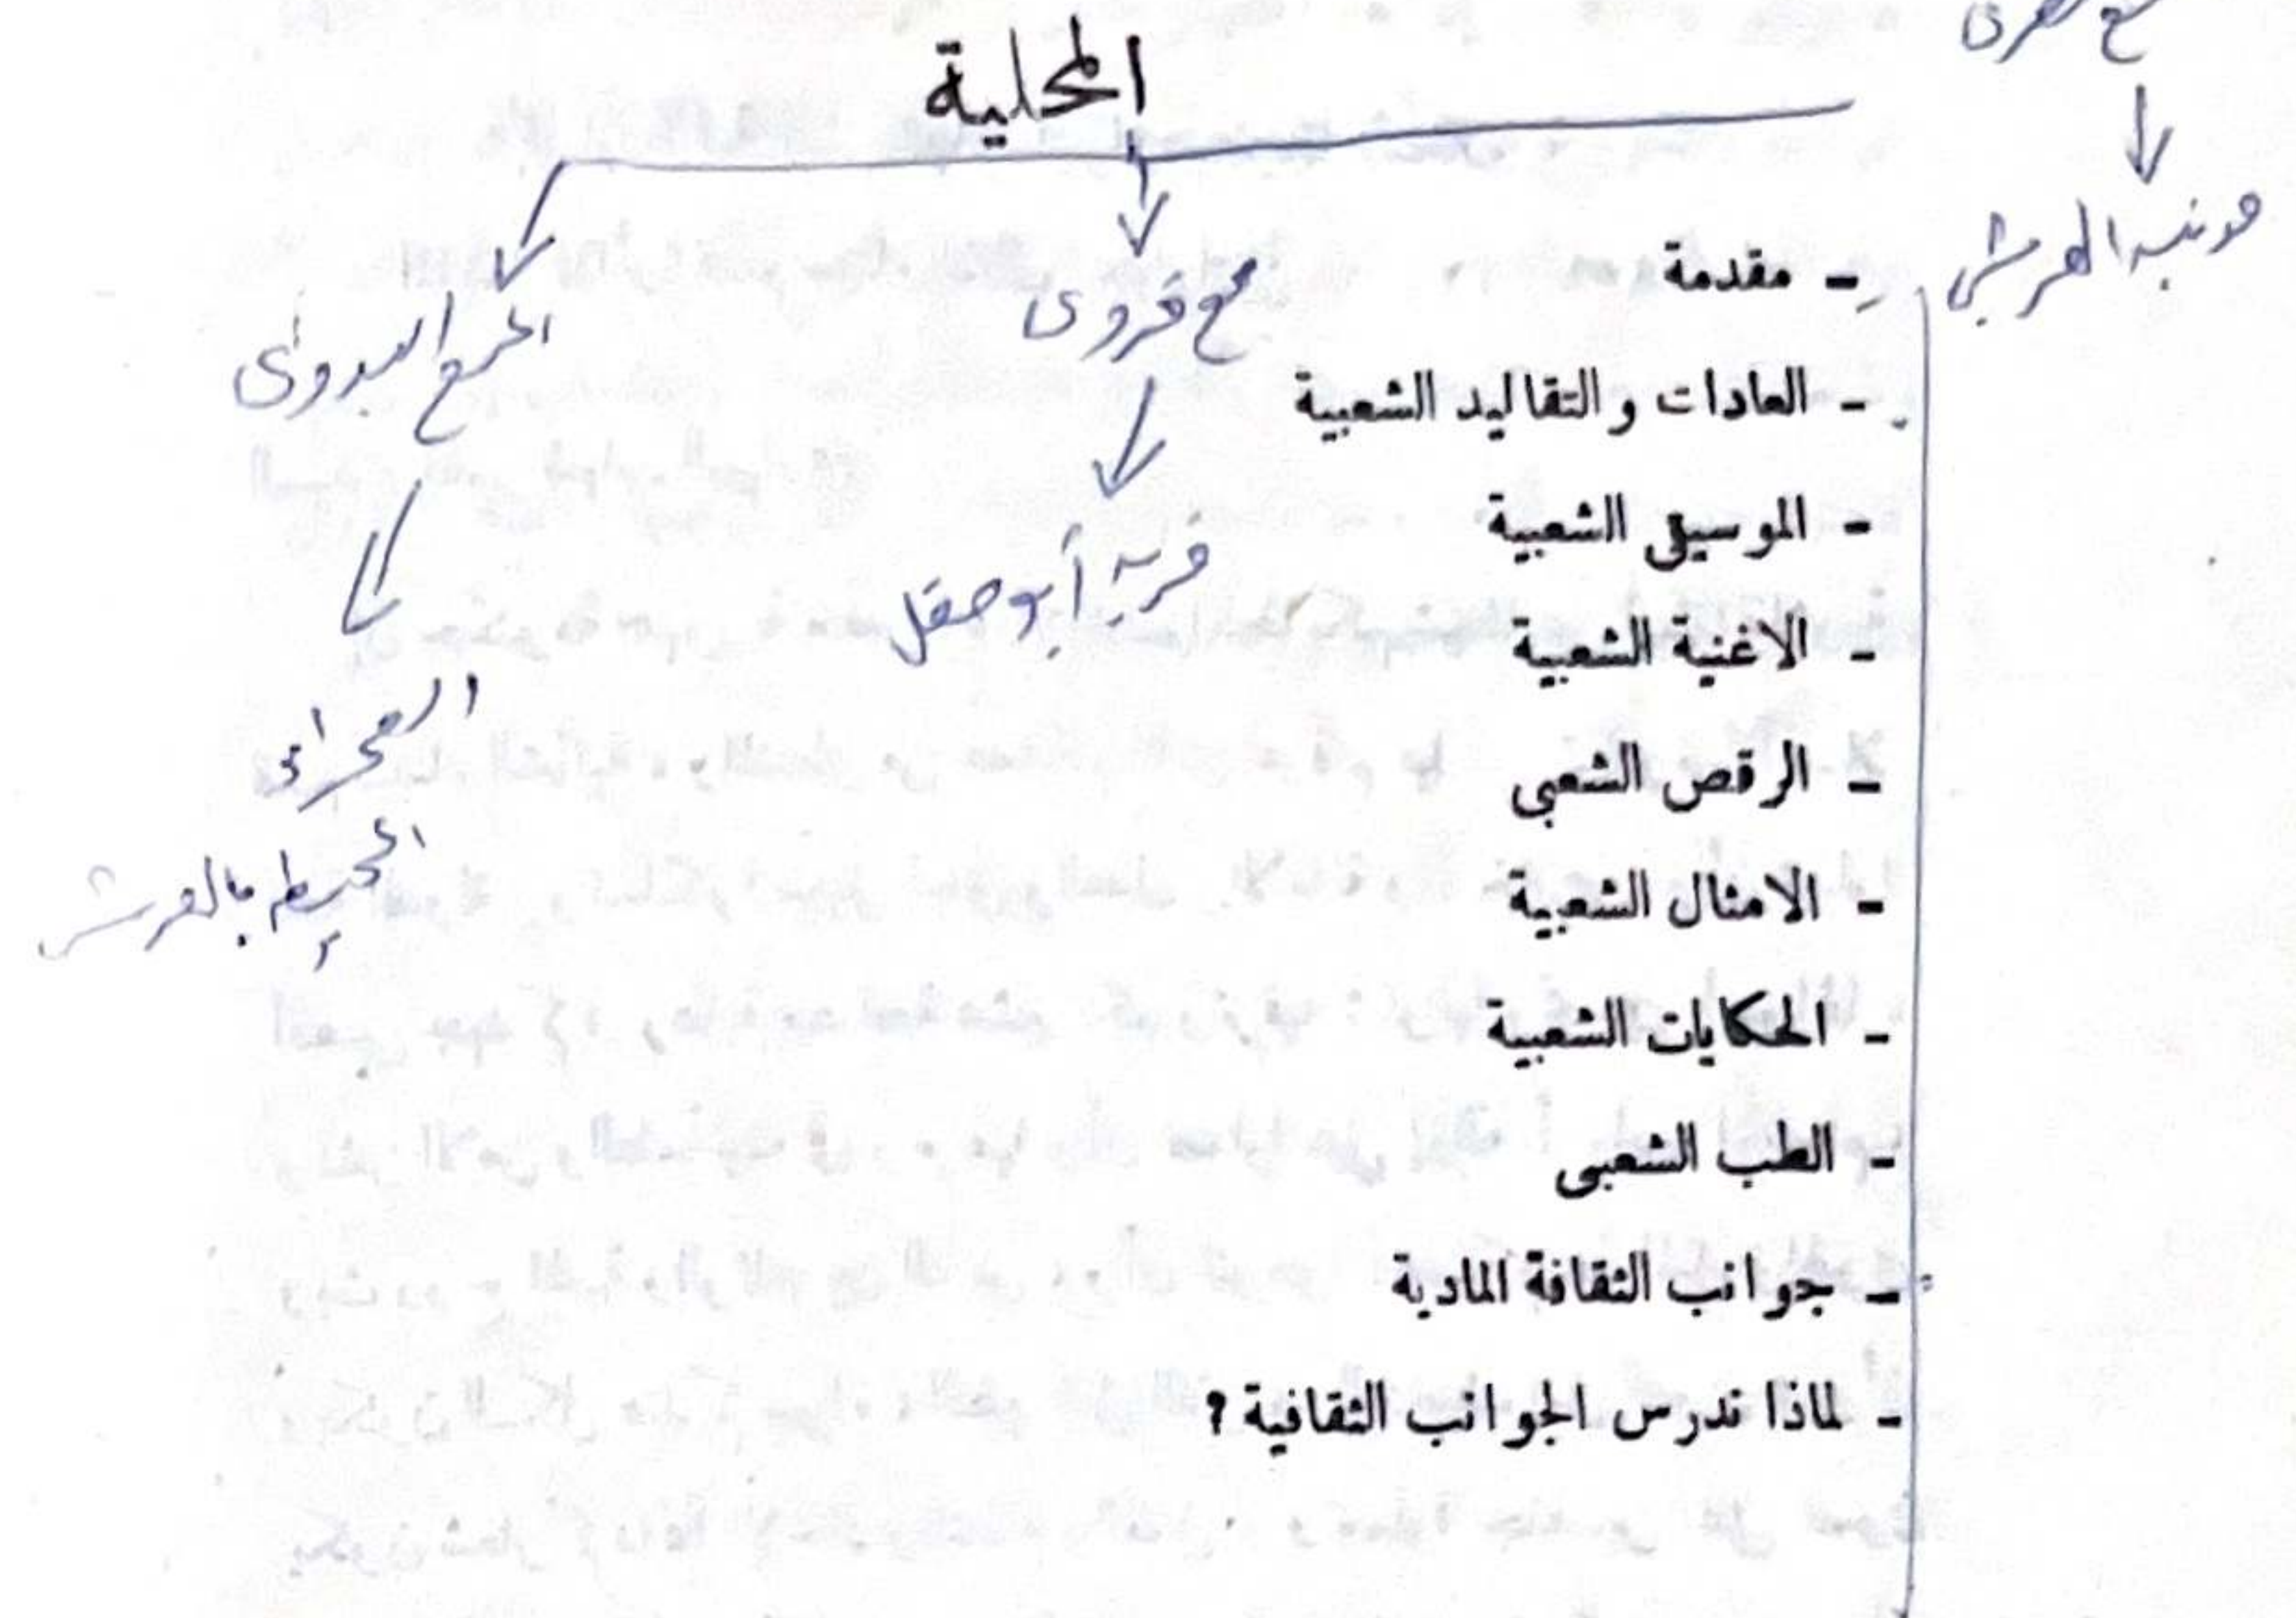 المحلية
مع قروى
المجتمع البدوى
قرية أبو صقل
الصحراء
المحيط بالعريش
- مقدمة
- العادات والتقاليد الشعبية
- الموسيقى الشعبية
- الاغنية الشعبية
- الرقص الشعبى
- الامثال الشعبية
- الحكايات الشعبية
- الطب الشعبى
- جوانب الثقافة المادية
- لماذا ندرس الجوانب الثقافية ؟